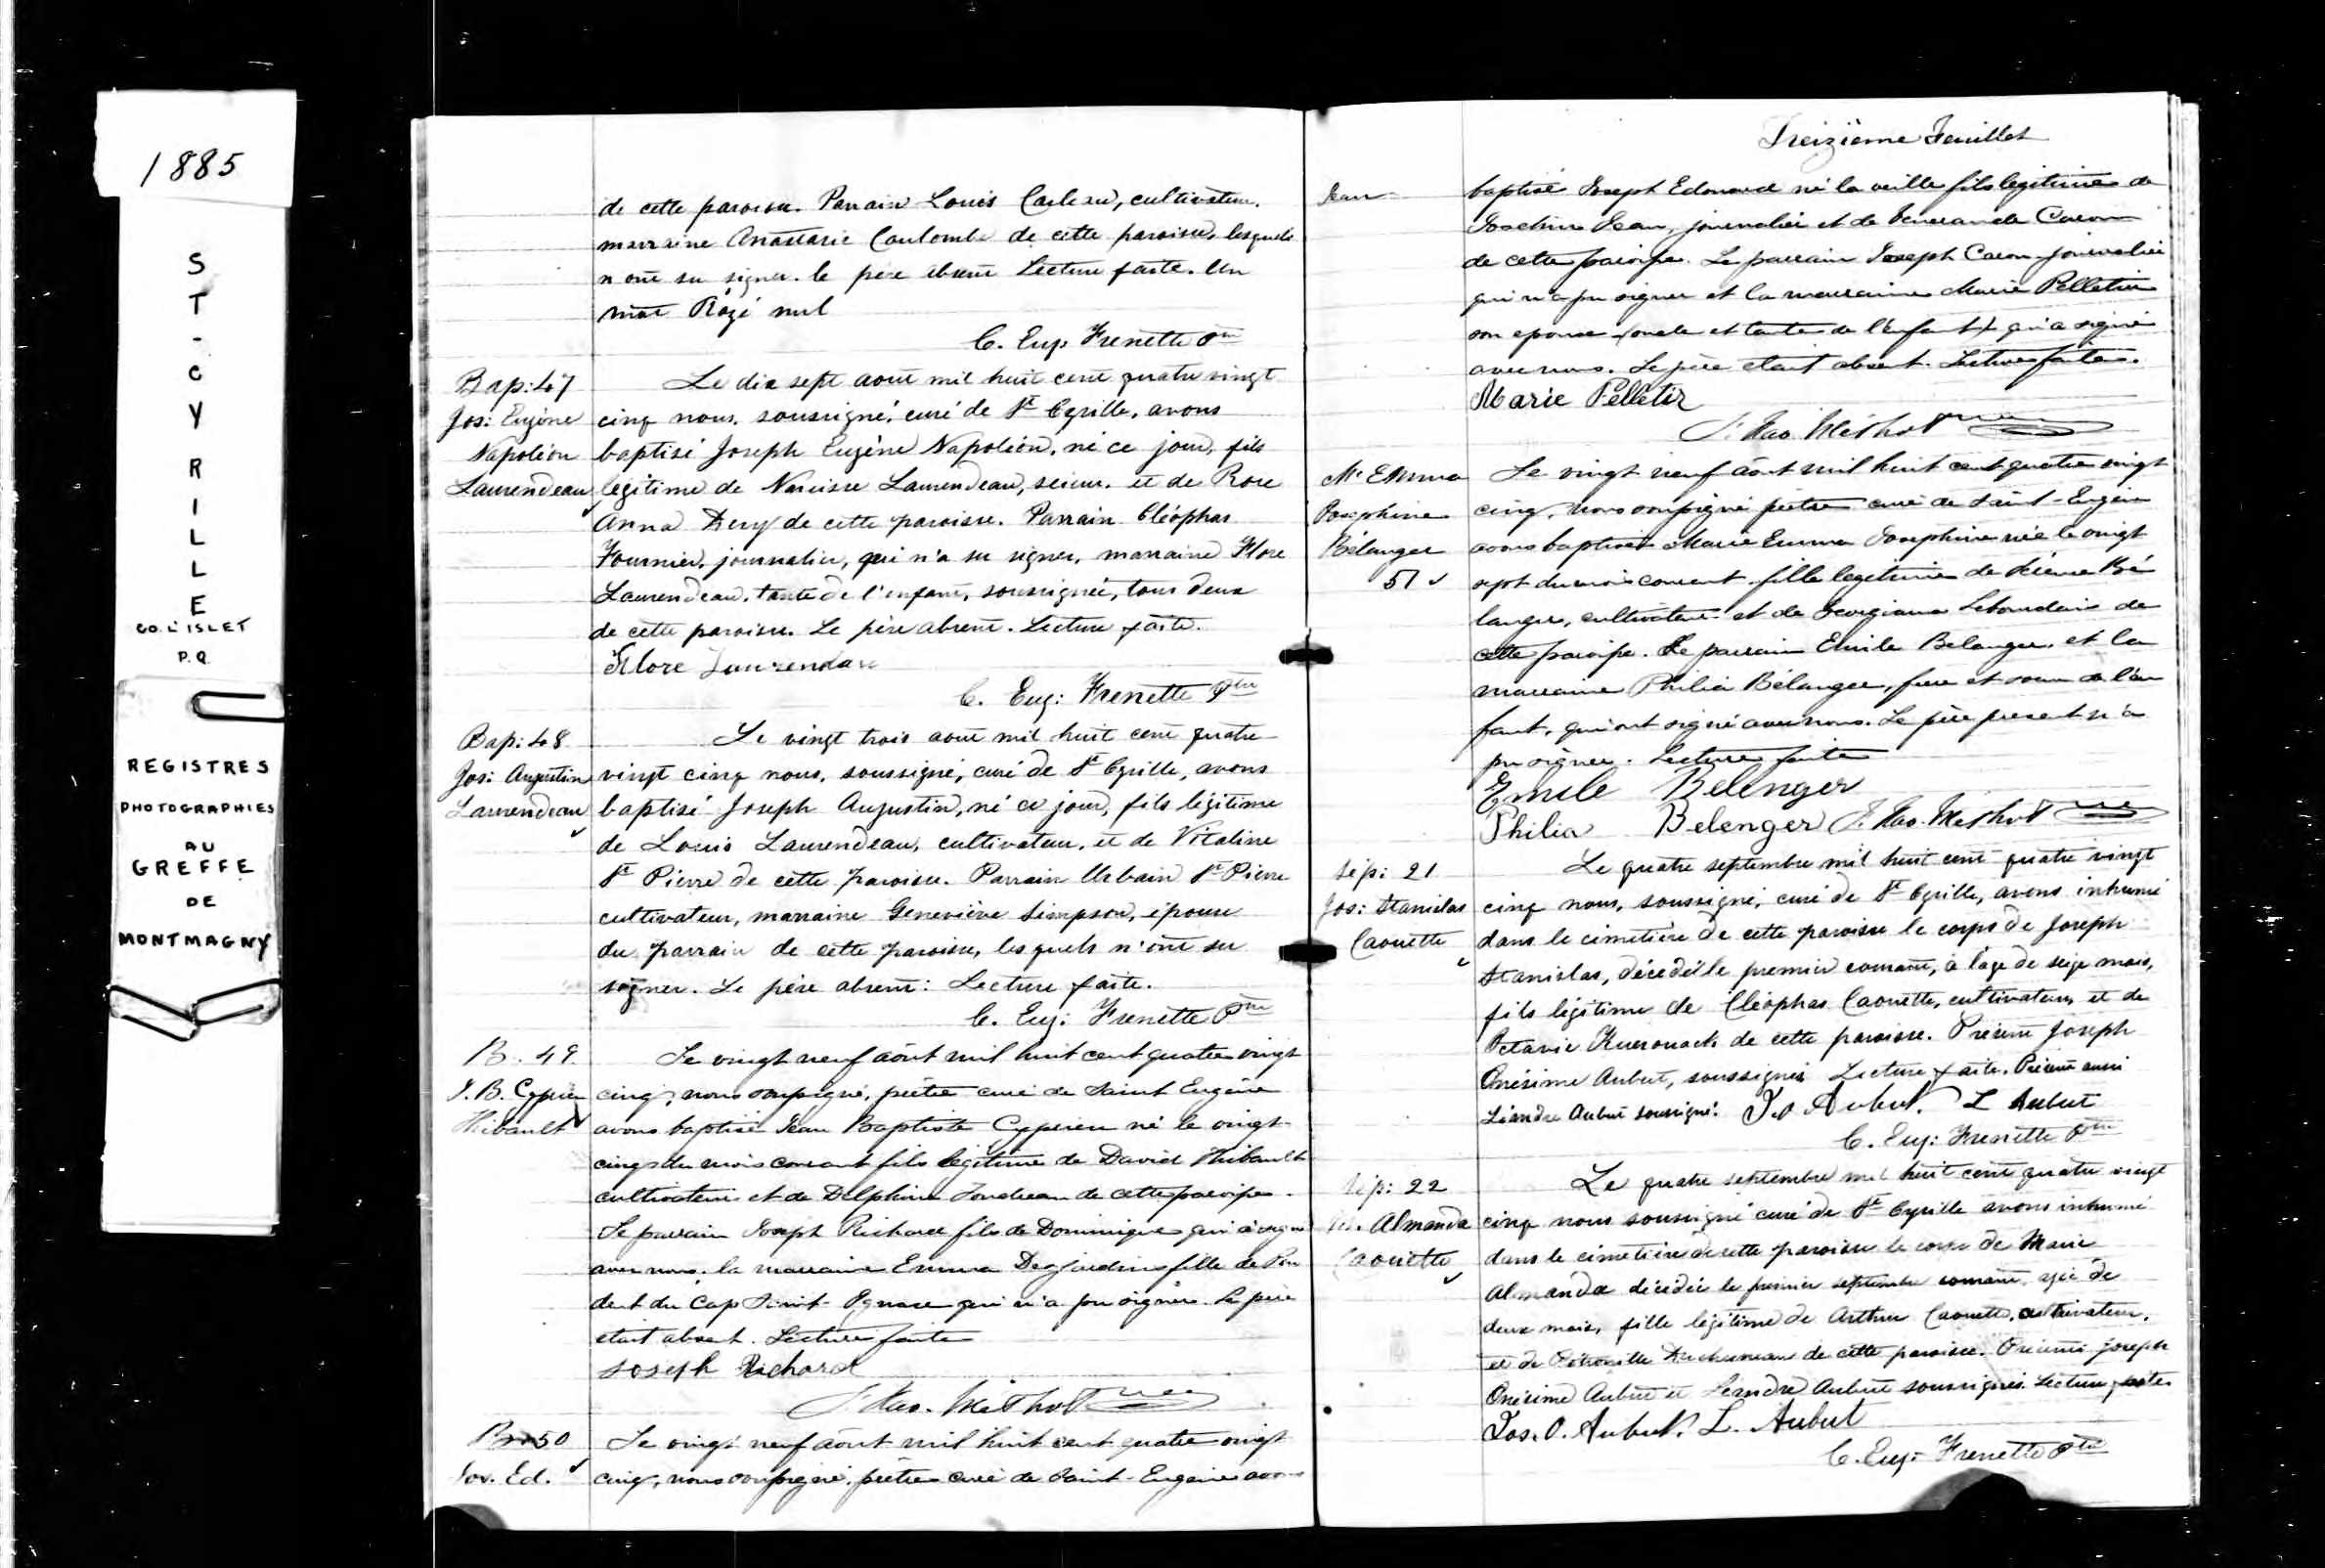 1885
ST-CYRILLE
CO. L'ISLET
P.Q.
REGISTRES
PHOTOGRAPHIES
AU
GREFFE
DE
MONTMAGNY
de cette paroisse. Parrain Louis cultivateur.
marraine Anastasie Coulombe de cette paroisse, lesquels
n'ont su signer. le père absent Lecture faite. Un
mot nul
C. Eug: Frenette Ptre
Bap: 47
Jos: Eugène
Napoléon
Laurendeau
Le dix sept aout mil huit cent quatre vingt
cinq nous, soussigné, curé de St Cyrille, avons
baptisé Joseph Eugène Napoléon, né ce jour, fils
légitime de Narcisse Laurendeau, et de Rose
Anna Dery de cette paroisse. Parrain Cléophas
Fournier, journalier, qui n'a su signer, marraine Flore
Laurendeau, tante de l'enfant, soussignée, tous deux
de cette paroisse. Le père absent. Lecture faite.
Flore Laurendau
C. Eug: Frenette Ptre
Bap: 48
Jos: Augustin
Laurendeau
Le vingt trois aout mil huit cent quatre
vingt cinq nous, soussigné, curé de St Cyrille, avons
baptisé Joseph Augustin, né ce jour, fils légitime
de Louis Laurendeau, cultivateur, et de Vitaline
St Pierre de cette paroisse. Parrain Urbain St Pierre
cultivateur, marraine Geneviève Simpson, épouse
du parrain de cette paroisse, lesquels n'ont su
signer. Le père absent: Lecture faite.
C. Eug: Frenette Ptre
B. 49.
J. B. Cyprien
Thibault
Le vingt neuf août mil huit cent quatre vingt
cinq, nous soussigné, prêtre curé de Saint Eugène
avons baptisé Jean Baptiste Cyprien né le vingt
cinq du mois courant fils légitime de David Thibault
cultivateur et de Delphine de cette paroisse.
Le parrain Joseph Richard fils de Dominique qui a signé
avec nous, la marraine Emma Desjardins fille de
du Cap Saint-Ignace qui n'a pu signer. Le père
était absent. Lecture faite
Joseph Richard
Méthot
B. 50
Jos. Ed.
Le vingt neuf août mil huit cent quatre vingt
cinq, nous soussigné, prêtre curé de Saint-Eugène avons
Treizième Feuillet
Jean
baptisé Joseph Edouard né la veille fils légitime de
Joachim Jean, journalier et de Caron
de cette paroisse. Le parrain Joseph Caron journalier
qui n'a pu signer et la marraine Marie Pelletier
son epouse (oncle et tante de l'enfant) qui a signé
avec nous. Le père était absent. Lecture faite.
Marie Pelletir
Méthot
M. Emma
Josephine
Bélanger
51
Le vingt neuf août mil huit cent quatre vingt
cinq, nous soussigné prêtre curé de Saint-Eugène
avons baptisé Marie Emma Josephine née le vingt
sept du mois courant fille légitime de Bé
langer, cultivateur et de Georgiana Lebourdais de
cette paroisse. Le parrain Emile Belanger, et la
marraine Philia Bélanger, frère et soeur de l'en
fant, qui ont signé avec nous. Le père présent n'a
pu signer. Lecture faite
Emile Belenger
Philia Belenger Méthot
Sép: 21
Jos: Stanislas
Caouette
Le quatre septembre mil huit cent quatre vingt
cinq nous, soussigné, curé de St Cyrille, avons inhumé
dans le cimetière de cette paroisse le corps de Joseph
Stanislas, décédé le premier courant, à l'age de seize mois,
fils légitime de Cléophas Caouette, cultivateur, et de
Octavie de cette paroisse. Présent Joseph
Onésime Aubut, soussigné. Lecture faite. Présent aussi
Léandre Aubut soussigné. J. O Aubut. L Aubut
C. Eug: Frenette Ptre
Sép: 22
M. Almanda
Caouette
Le quatre septembre mil huit cent quatre vingt
cinq nous soussigné curé de St Cyrille avons inhumé
dans le cimetière de cette paroisse le corps de Marie
Almanda décédée le premier septembre courant, agée de
deux mois, fille légitime de Arthur Caouette, cultivateur,
et de de cette paroisse. Présents Joseph
Onésime Aubut et Léandre Aubut soussignés. Lecture faite
Jos. O. Aubut. L. Aubut
C. Eug: Frenette Ptre